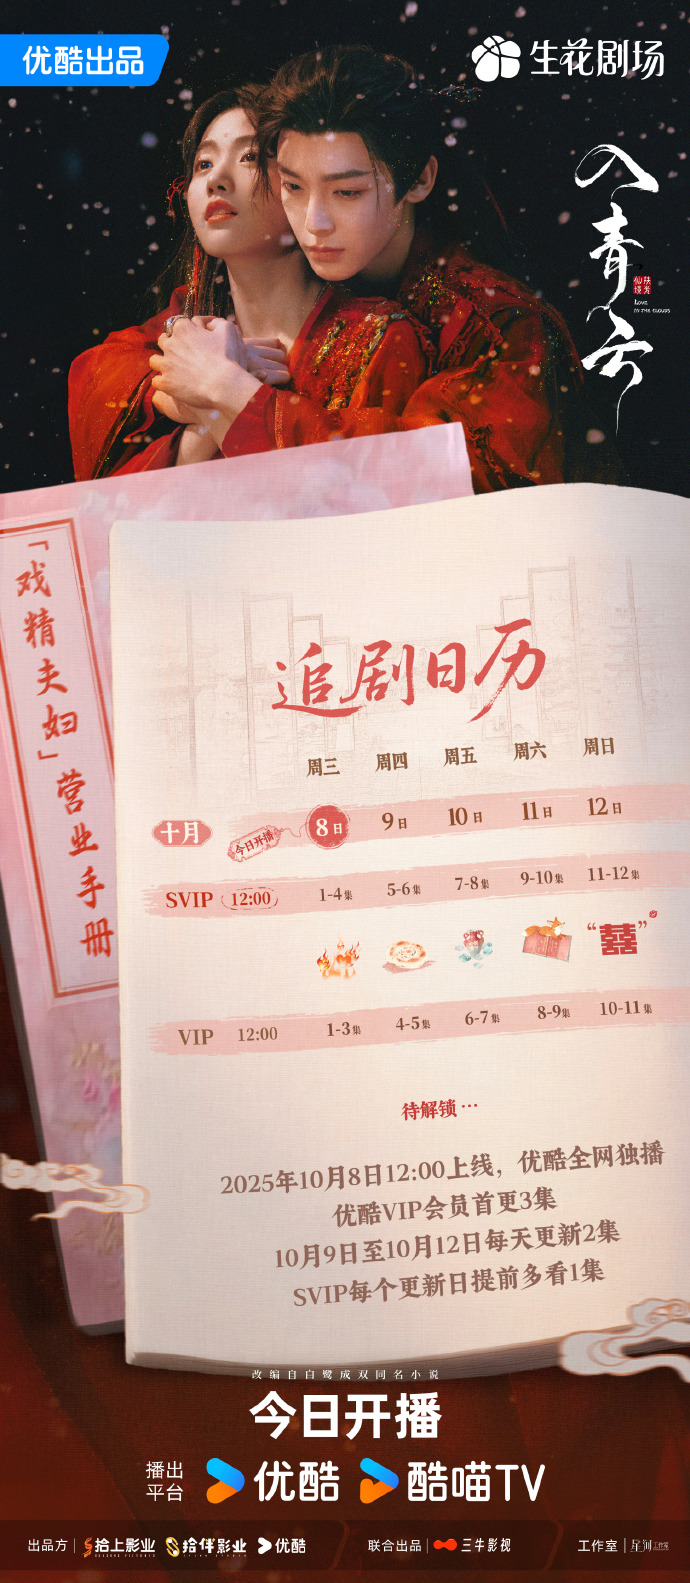 优酷出品
生花剧场
入青云
扶光
仙境
LOVE
IN THE CLOUDS
「戏精夫妇」营业手册
追剧日历
周三 周四 周五 周六 周日
十月 今日开播 8日 9日 10日 11日 12日
SVIP 12:00 1-4集 5-6集 7-8集 9-10集 11-12集
“囍”
VIP 12:00 1-3集 4-5集 6-7集 8-9集 10-11集
待解锁…
2025年10月8日12:00上线，优酷全网独播
优酷VIP会员首更3集
10月9日至10月12日每天更新2集
SVIP每个更新日提前多看1集
改编自白鹭成双同名小说
今日开播
播出平台 优酷 酷喵TV
出品方 | 拾上影业 拾伴影业 优酷 联合出品 | 三牛影视 工作室 | 星河工作室